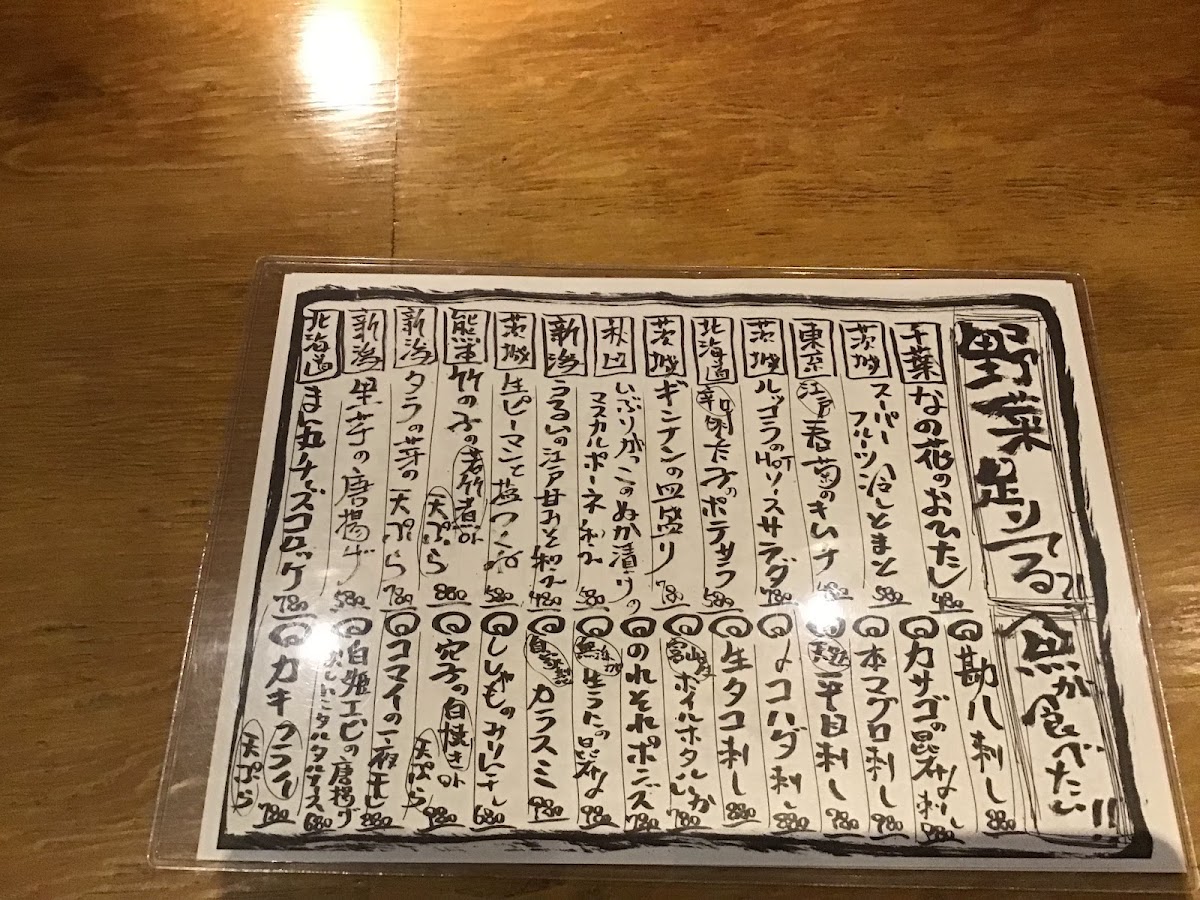 野菜足りてる?!
千葉 なの花のおひたし 480
茨城 スーパーフルーツ冷しとまと 580
東京 江戸春菊のキムチ 480
茨城 ルッコラのHOTソースサラダ 780
北海道 辛口明太子のポテサラ 580
茨城 ギンナンの皿盛り 780
秋田 いぶりがっこのぬか漬けの
マスカルポーネ和え 580
新潟 うるいの江戸甘みそ和え 480
茨城 生ピーマンと塩つくね 580
熊本 竹の子の若竹煮 or 天ぷら 880
新潟 タラの芽の天ぷら 780
新潟 里芋の唐揚げ 580
北海道 まん丸チーズコロッケ 780
魚が食べたい!!
勘八刺し 880
カサゴの昆布〆刺し 980
本マグロ刺し 980
天然 平目刺し 980
メコハダ刺し 880
生タコ刺し 880
富山 ボイルホタルいか 780
のれそれポン酢 780
生うにの昆布〆 980
自家製 カラスミ 980
ししゃものみりん干し 680
穴子の白焼き or 天ぷら 980
コマイの一夜干し 880
白姫エビの唐揚げ
タルタルソース 680
カキフライ
天ぷら 780